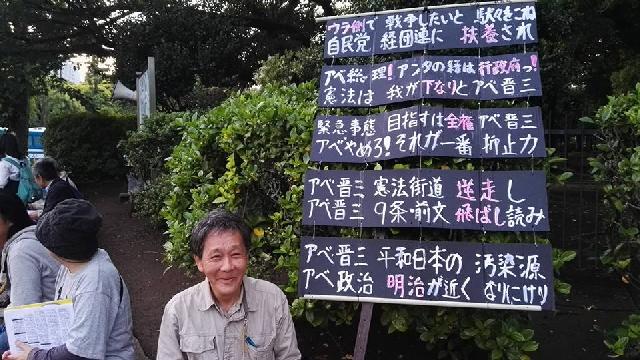 ウラ側で 戦争したいと 駄々をこね
自民党 経団連に 扶養され
アベ総理!アンタの経は 行政府っ!
憲法は 我が下なりと アベ晋三
緊急事態 目指すは全権 アベ晋三
アベやめろ!それが一番 抑止力
アベ晋三 憲法街道 逆走し
アベ晋三 9条・前文 飛ばし読み
アベ晋三 平和日本の 汚染源
アベ政治 明治が近く なりにけり